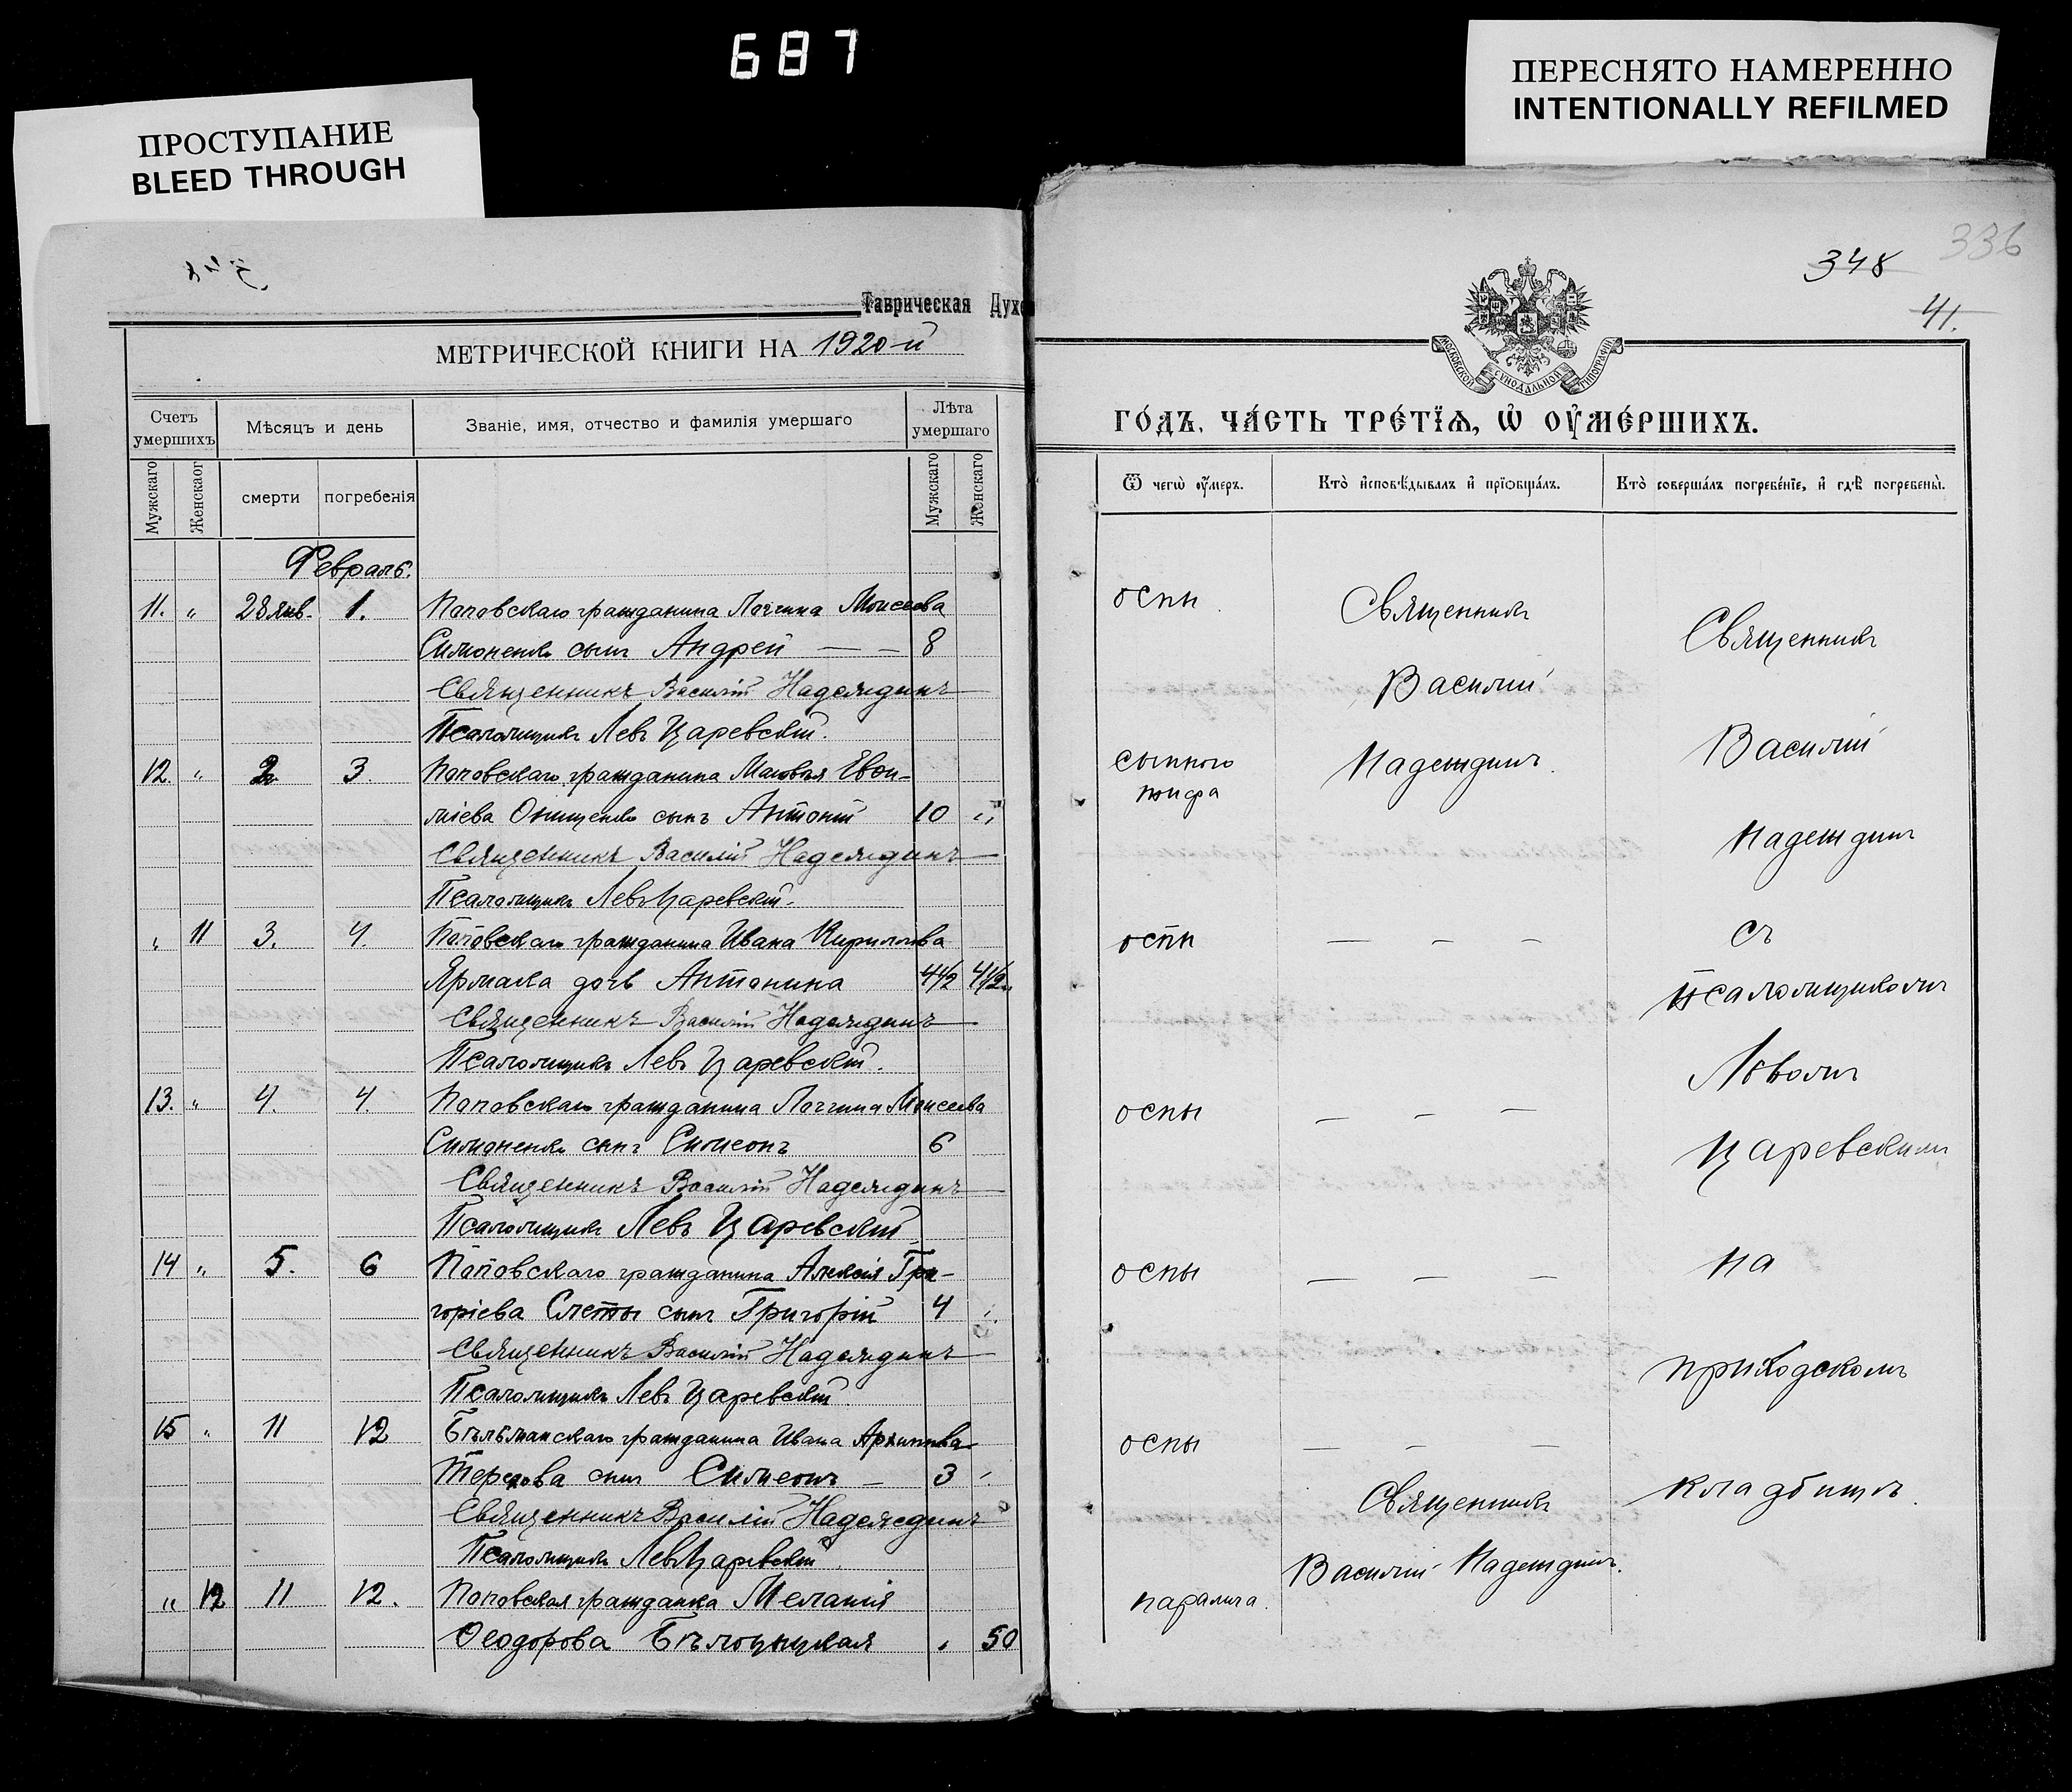 687
ПРОСТУПАНИЕ
BLEED THROUGH
ПЕРЕСНЯТО НАМЕРЕННО
INTENTIONALLY REFILMED
Таврическая Духо
МЕТРИЧЕСКОЙ КНИГИ НА 1920-й
Счетъ умершихъ
Мѣсяцъ и день
Званіе, имя, отчество и фамилія умершаго
Лѣта умершаго
Мужскаго
Женскаог
смерти
погребенія
Мужскаго
Женскаго
Февраль.
11. " 28 янв. 1. Поповскаго гражданина Логгина Моисеева
Симоненко сынъ Андрей — — 8
Священникъ Василій Надеждинъ
Псаломщикъ Левъ Царевскій.
12. " 2 3. Поповскаго гражданина
Онищенко сынъ Антоній 10 "
Священникъ Василій Надеждинъ
Псаломщикъ Левъ Царевскій.
" 11 3. 4. Поповскаго гражданина Ивана Кириллова
Ярмака дочь Антонина 4½ 4½
Священникъ Василій Надеждинъ
Псаломщикъ Левъ Царевскій.
13. " 4. 4. Поповскаго гражданина Логгина Моисеева
Симоненко сынъ Симеонъ 6
Священникъ Василій Надеждинъ
Псаломщикъ Левъ Царевскій
14 " 5. 6 Поповскаго гражданина Алексія Гри-
горіева Слеты сынъ Григорій 4
Священникъ Василій Надеждинъ
Псаломщикъ Левъ Царевскій.
15 " 11 12 Бѣльманскаго гражданина Ивана Архипова
сынъ Симеонъ — 3
Священникъ Василій Надеждинъ
Псаломщикъ Левъ Царевскій.
" 12 11 12. Поповская гражданка Меланія
Ѳеодорова 50
348
336
41.
МОСКОВСКОЙ СѴНОДАЛЬНОЙ ТИПОГРАФІИ
ГО́ДЪ, ЧА́СТЬ ТРЕ́ТЇѦ, Ѡ҆ ОУ҆МЕ́РШИХЪ.
Ѿ чегѡ̀ оу҆́меръ.
Кто̀ и҆сповѣ́дывалъ и҆ прїѡбща́лъ.
Кто̀ соверша́лъ погребе́нїе, и҆ гдѣ̀ погребены̀.
оспы
сыпного
тифа
оспы
оспы
оспы
оспы
паралича.
Священникъ
Василій
Надеждинъ.
— — —
— — —
— — —
— — —
Священникъ
Василій Надеждинъ.
Священникъ
Василій
Надеждинъ
съ
псаломщикомъ
Львомъ
Царевскимъ
на
приходскомъ
кладбищѣ.